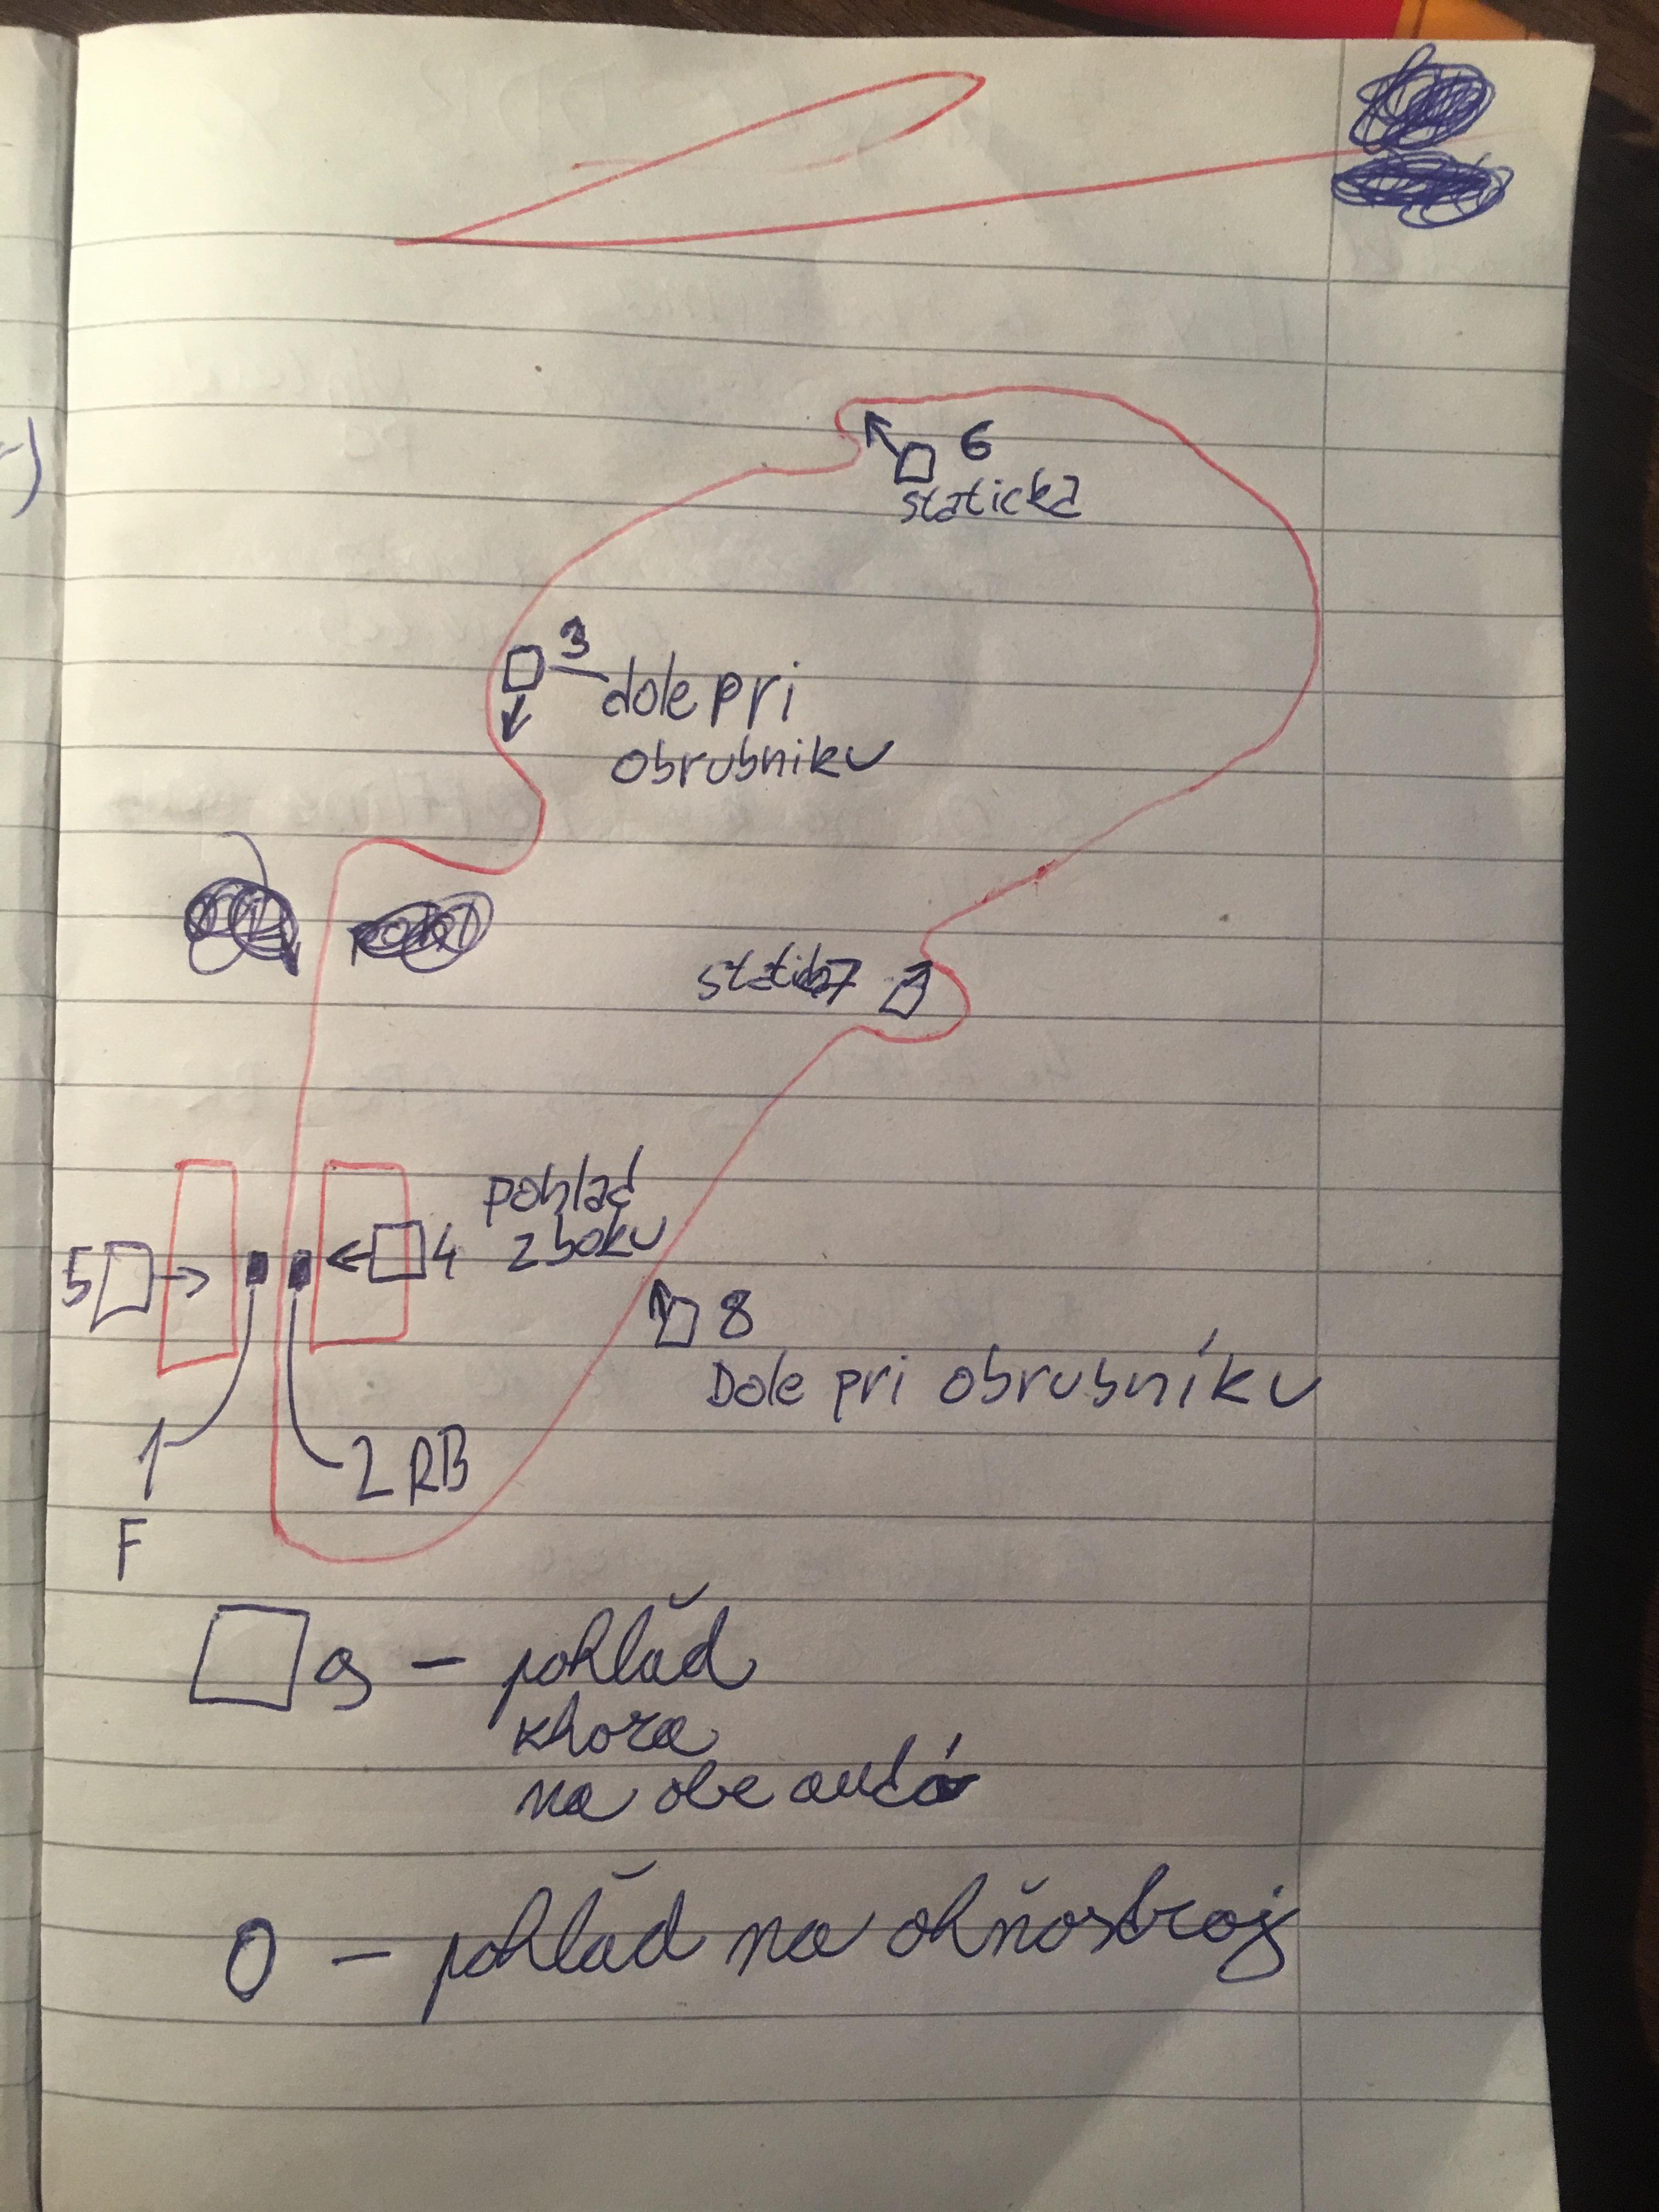 6
statická
3
dole pri
obrubniku
7
pohlad
z boku
5
4
8
Dole pri obrubníku
1
2 RB
F
9 - pohlăd
zhora
na obe autá
0 - pohlăd na ohňostroj